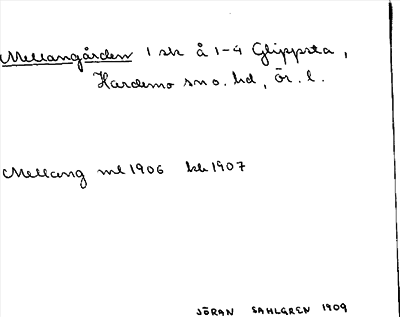 Mellangården 1 sk å 1-4 Glippsta,
Hardemo sn o. hd, Ör. l.
Mellang ml 1906 kk 1907
JÖRAN SAHLGREN 1909